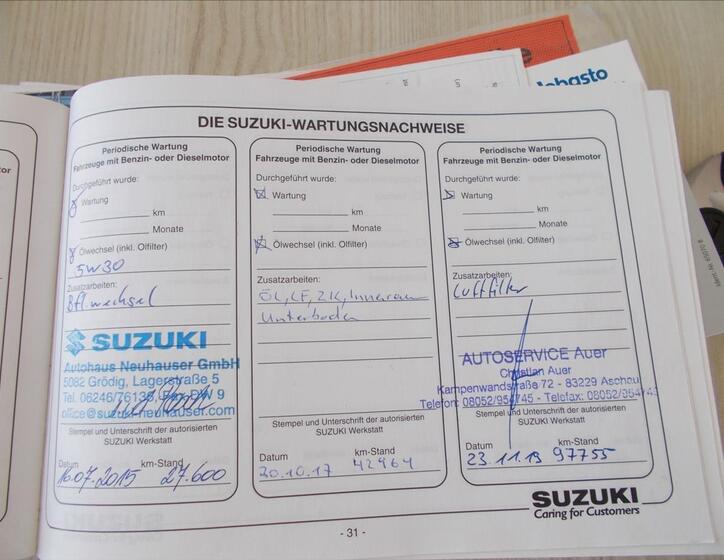 Webasto
DIE SUZUKI-WARTUNGSNACHWEISE
Periodische Wartung
Fahrzeuge mit Benzin- oder Dieselmotor
Durchgeführt wurde:
Wartung
km
Monate
Ölwechsel (inkl. Ölfilter)
5W30
Zusatzarbeiten:
Bflwechsel
SUZUKI
Autohaus Neuhauser GmbH
5082 Grödig, Lagerstraße 5
Tel. 06246/76136, Fax DW 9
office@suzuki-neuhauser.com
Stempel und Unterschrift der autorisierten
SUZUKI Werkstatt
Datum km-Stand
16.07.2015 27.600
Periodische Wartung
Fahrzeuge mit Benzin- oder Dieselmotor
Durchgeführt wurde:
Wartung
km
Monate
Ölwechsel (inkl. Ölfilter)
Zusatzarbeiten:
ÖL, LF, ZK, Innenraum
Unterboden
Stempel und Unterschrift der autorisierten
SUZUKI Werkstatt
Datum km-Stand
30.10.17 42964
Periodische Wartung
Fahrzeuge mit Benzin- oder Dieselmotor
Durchgeführt wurde:
Wartung
km
Monate
Ölwechsel (inkl. Ölfilter)
Zusatzarbeiten:
Luftfilter
AUTOSERVICE Auer
Christian Auer
Kampenwandstraße 72 - 83229 Aschau
Telefon: 08052/954745 - Telefax: 08052/954743
Stempel und Unterschrift der autorisierten
SUZUKI Werkstatt
Datum km-Stand
23.11.19 97755
SUZUKI
Caring for Customers
- 31 -